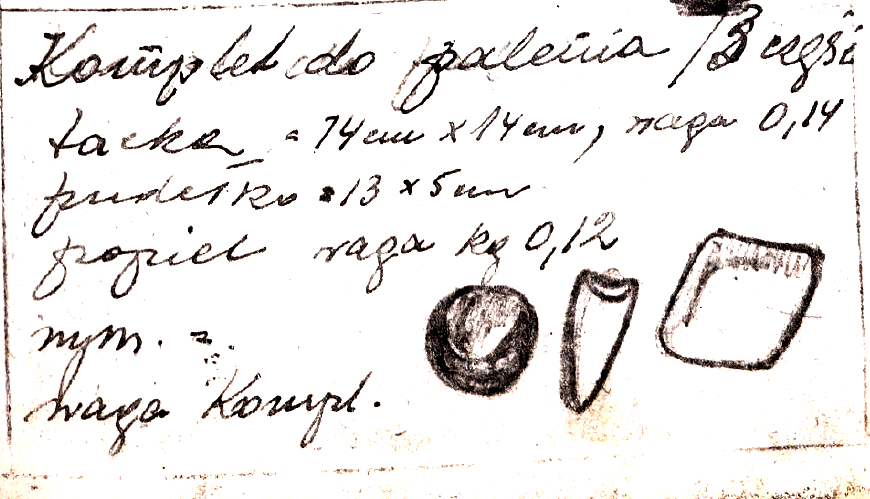 Komplet do palenia / 3 części
tacka = 14cm x 14cm, waga 0,14
pudełko = 13 x 5cm
popiel waga kg 0,12
wym. =
waga Kompl.